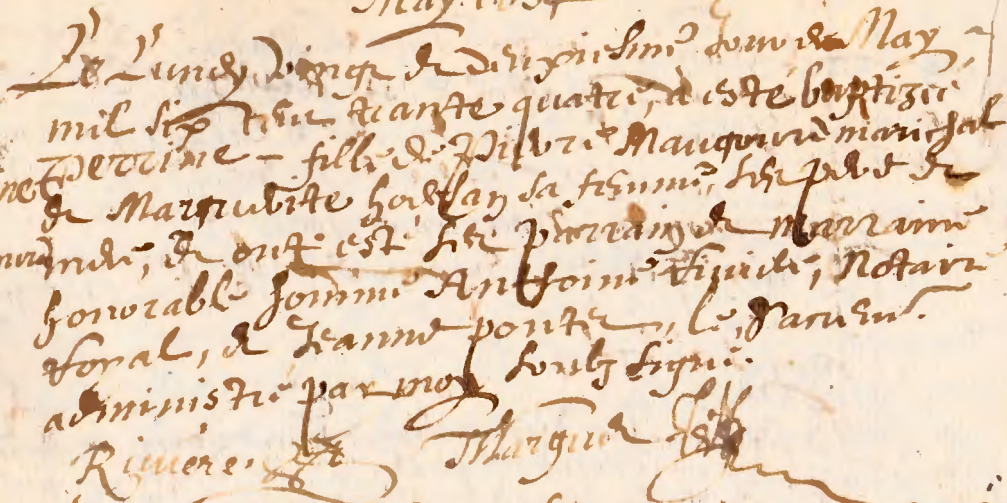 May
Le Lundy vingt & deuxiesme Jour de May
mil six cens trante quatre, a esté baptizée
Perrine - fille de Pierre Maugourd marichal
& Marguerite sa femme, ses pere &
mere, & ont esté ses parrain & marraine
honorable homme Anthoine Riviere, Notaire
royal, & Jeanne ponter, le sacrem.
administré par moy soubz signé.
Riviere Marguer